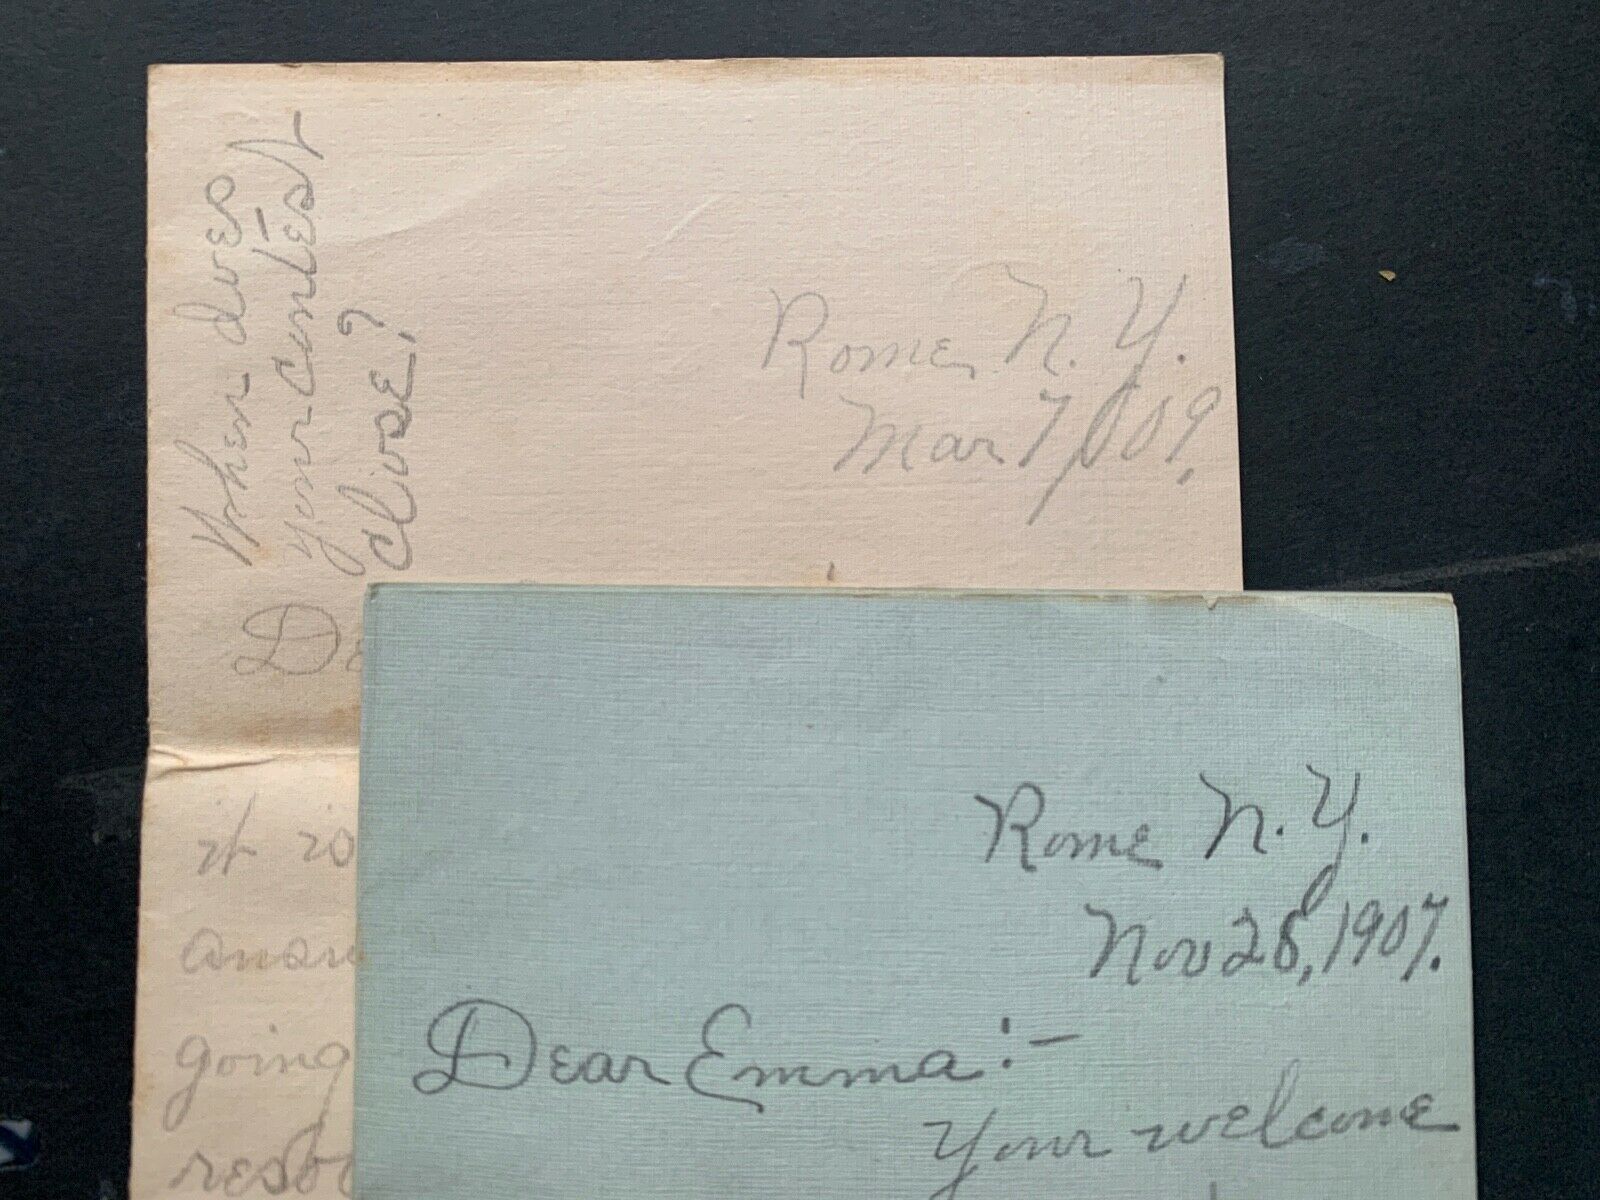 When does
your contest
close?
Rome N. Y.
Mar 7, 09.
De
it is
answ
going
Rome N. Y.
Nov 28, 1907.
Dear Emma:-
Your welcome